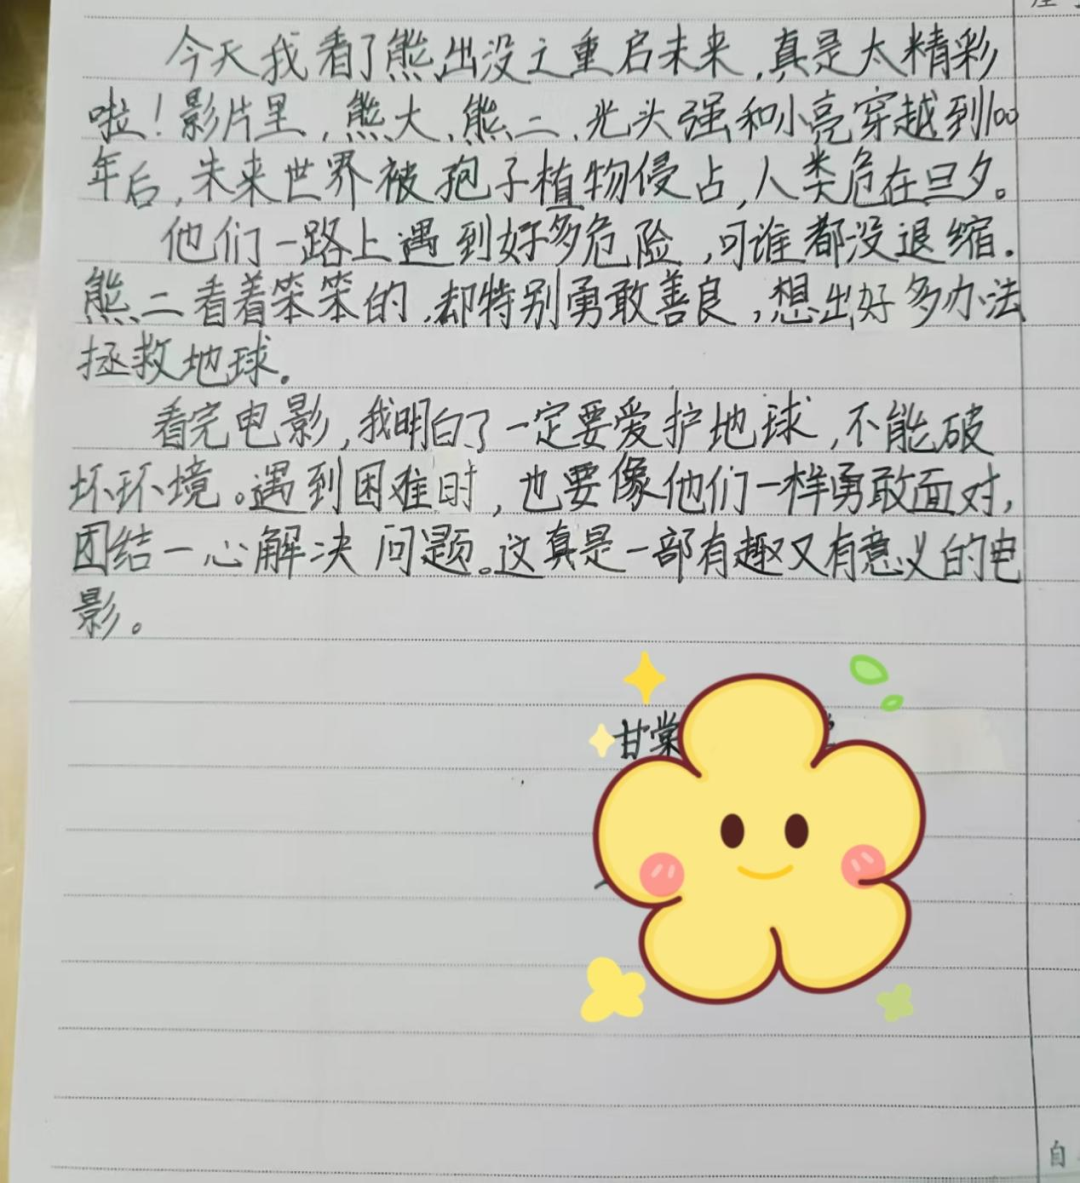 今天我看了熊出没之重启未来,真是太精彩
啦!影片里,熊大、熊二、光头强和小亮穿越到100
年后,未来世界被孢子植物侵占,人类危在旦夕。
他们一路上遇到好多危险,可谁都没退缩.
熊二看着笨笨的,却特别勇敢善良,想出好多办法
拯救地球.
看完电影,我明白了一定要爱护地球,不能破
坏环境。遇到困难时,也要像他们一样勇敢面对,
团结一心解决问题。这真是一部有趣又有意义的电
影。
甘棠
自